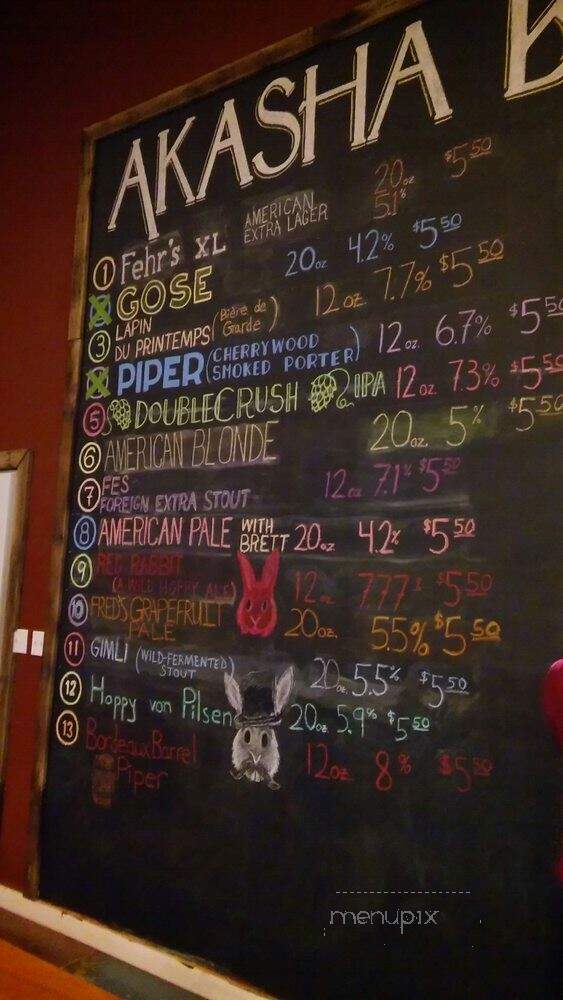 AKASHA B
1 Fehr's XL AMERICAN EXTRA LAGER 20oz 5.1% $5.50
GOSE 20oz 4.2% $5.50
3 LAPIN DU PRINTEMPS (Bière de Garde) 12oz 7.7% $5.50
PIPER (CHERRYWOOD SMOKED PORTER) 12oz 6.7% $5.50
5 DOUBLECRUSH IPA 12oz 7.3% $5.50
6 AMERICAN BLONDE 20oz. 5% $5.50
7 FES FOREIGN EXTRA STOUT 12oz 7.1% $5.50
8 AMERICAN PALE WITH BRETT 20oz 4.2% $5.50
9 RED RABBIT (A WILD HOPPY ALE) 12oz 7.77% $5.50
10 FRED'S GRAPEFRUIT PALE 20oz. 5.5% $5.50
11 GIMLI (WILD-FERMENTED STOUT) 20oz. 5.5% $5.50
12 Hoppy von Pilsen 20oz 5.9% $5.50
13 Bordeaux Barrel Piper 12oz 8% $5.50
menupix